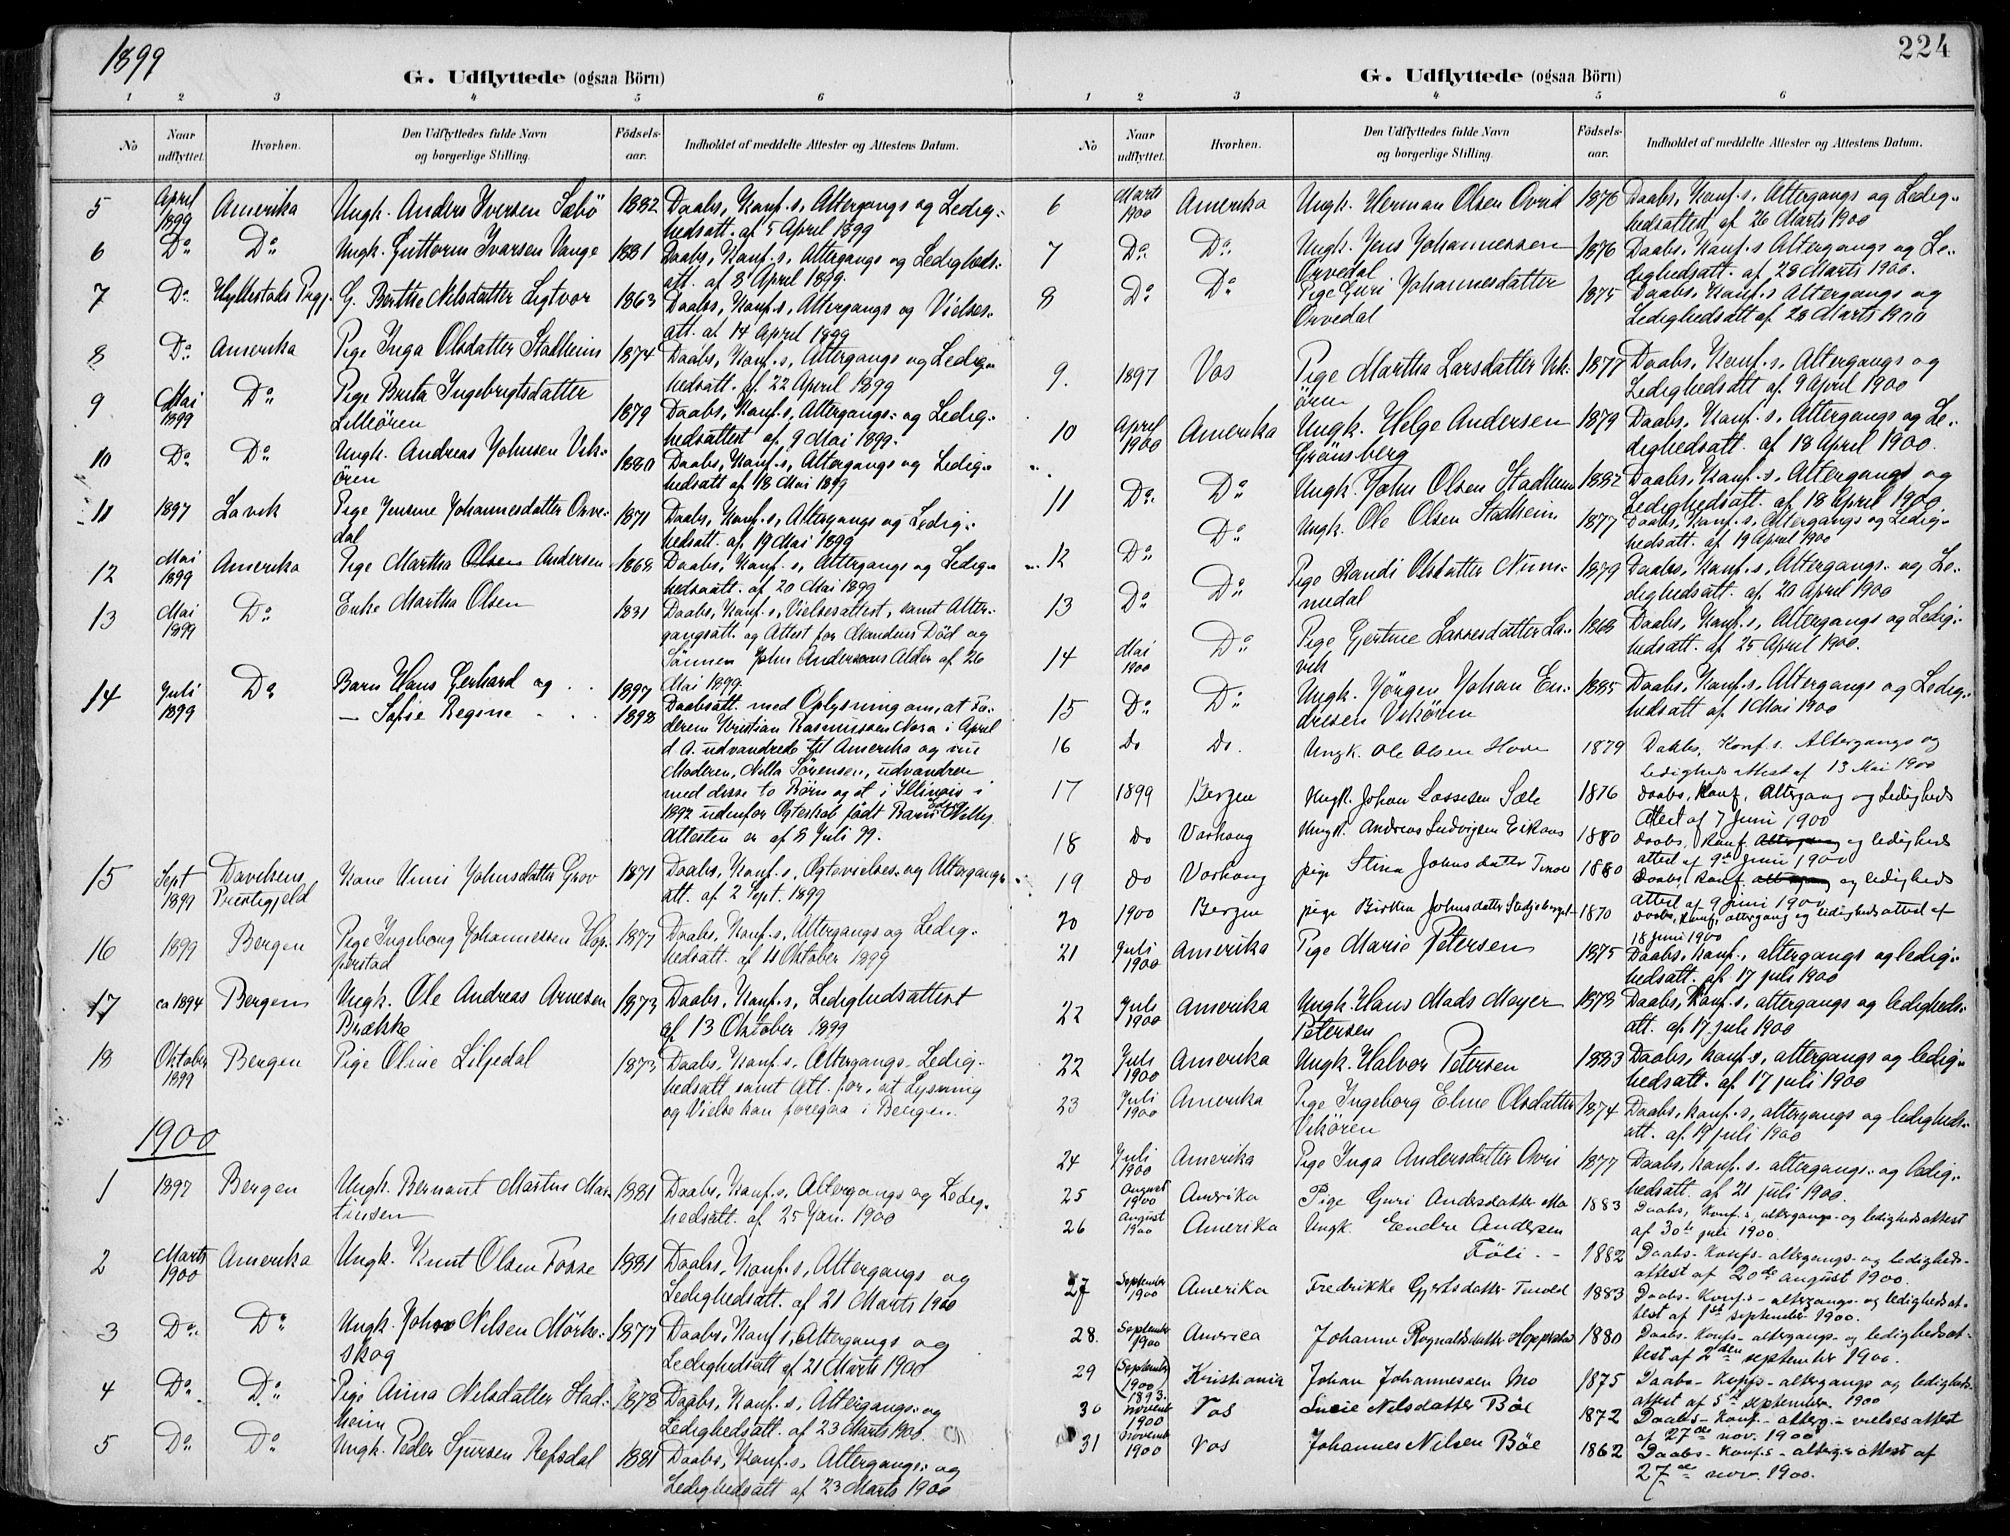 1899
G. Udflyttede (ogsaa Börn)
1 2 3 4 5 6
No
Naar udflyttet.
Hvorhen.
Den Udflyttedes fulde Navn og borgerlige Stilling.
Födsels-aar.
Indholdet af meddelte Attester og Attestens Datum.
5 April 1899 Amerika Ungk. Anders Iversen Sæbö 1882 Daabs, Konf.s, Altergangs og Ledig-
hedsatt. af 5 April 1899
6 Do Do Ungk. Guttorm Ivarsen Vange 1881 Daabs, Konf.s, Altergangs og Ledigheds-
att. af 8 April 1899.
7 Do Hyllestads Prgj. G. Berthe Nilsdatter Ligtvor 1863 Daabs, Konf.s, Altergangs og Vielses-
att. af 14 April 1899
8 Do Amerika Pige Inga Olsdatter Stadheim 1874 Daabs, Konf.s, Altergangs og Ledig-
hedsatt. af 22 April 1899
9 Mai 1899 Do Pige Brita Ingebrigtsdatter
Lilleören 1879 Daabs, Konf.s, Altergangs- og Ledig-
hedsattest af 9 Mai 1899.
10 Do Do Ungk. Andreas Johnsen Vik-
ören 1880 Daabs, Konf.s, Altergangs og Ledig-
hedsatt af 18 Mai 1899
11 1897 Lavik Pige Jensine Johannesdatter Orve-
dal 1871 Daabs, Konf.s, Altergangs og Ledig-
hedsatt. af 19 Mai 1899
12 Mai 1899 Amerika Pige Martha Olsen Andersen 1868 Daabs, Konf.s, Altergangs og Ledig-
hedsatt. af 20 Mai 1899
13 Mai 1899 Do Enke Martha Olsen 1831 Daabs, Konf.s, Vielsesattest, samt Alter-
gangsatt. og Attest for Mandens Död og
Sönnen John Andersens Alder af 26
Mai 1899.
14 Juli 1899 Do Barn Hans Gerhard og 1897 Daabsatt. med Oplysning om, at Fa-
— Sofie Regine 1898 deren Kristian Rasmussen Nasa i April
d. A. udvandrede til Amerika og nu
Moderen, Nilla Sörensen, udvandrer
med disse to Börn og et i Illinois i
1892 udenfor Egteskab födt Barn Nelly.
Attesten er af 8 Juli 99.
15 Sept 1899 Davikens Prestegjeld Kone Unni Johnsdatter Grov 1871 Daabs, Konf.s, Egtevielses- og Altergangs-
att. af 2 Sept. 1899
16 1899 Bergen Pige Ingeborg Johannessen Hop-
perstad 1877 Daabs, Konf.s, Altergangs og Ledig-
hedsatt. af 11 Oktober 1899
17 ca 1894 Bergen Ungk. Ole Andreas Arnesen
Brække 1873 Daabs, Konf.s, Ledighedsattest
af 13 Oktober 1899
18 Oktober 1899 Bergen Pige Oline Liljedal 1873 Daabs, Konf.s, Altergangs- Ledig-
hedsatt samt Att. for, at Lysning
og Vielse kan foregaa i Bergen.
1900
1 1897 Bergen Ungk. Bernant Martus Mar-
tinsen 1881 Daabs, Konf.s, Altergangs og Ledig-
hedsatt. af 25 Jan. 1900
2 Marts 1900 Amerika Ungk. Knut Olsen Fosse 1881 Daabs, Konf.s, Altergangs og
Ledighedsatt. af 21 Marts 1900
3 Do Do Ungk. John Nilsen Mörke-
skog 1877 Daabs, Konf.s, Altergangs og
Ledighedsatt af 21 Marts 1900
4 Do Do Pige Anna Nilsdatter Stad-
heim 1878 Daabs, Konf.s, Altergangs- og
Ledighedsatt. af 23 Marts 1900.
5 Do Do Ungk. Peder Sjursen Refsdal 1881 Daabs, Konf.s, Altergangs- og
Ledighedsatt af 23 Marts 1900
224
G. Udflyttede (ogsaa Börn)
1 2 3 4 5 6
No
Naar udflyttet.
Hvorhen.
Den Udflyttedes fulde Navn og borgerlige Stilling.
Födsels-aar.
Indholdet af meddelte Attester og Attestens Datum.
6 Marts 1900 Amerika Ungk. Herman Olsen Ovrid 1876 Daabs, Konf.s, Altergangs og Ledig-
hedsattest af 26 Marts 1900
7 Do Do Ungk. Jens Johannessen
Orvedal 1876 Daabs, Konf.s Altergangs og Le-
dighedsatt. af 28 Marts 1900.
8 Do Do Pige Guri Johannesdatter
Orvedal 1875 Daabs, Konf.s Altergangs og
Ledighedsatt af 28 Marts 1900
9. 1897 Vos Pige Martha Larsdatter Vik-
ören 1877 Daabs, Konf.s, Altergangs og
Ledighedsatt af 9 April 1900
10 April 1900 Amerika Ungk. Helge Andersen
Grönsberg 1879 Daabs, Konf.s, Altergangs og Le-
dighedsatt. af 18 April 1900.
11 Do Do Ungk. John Olsen Stadheim 1882 Daabs, Konf.s, Altergangs og
Ledighedsatt. af 18 April 1900
12 Do Do Ungk. Ole Olsen Stadheim 1877 Daabs, Konf.s, Altergangs og Ledig-
hedsatt. af 19 April 1900
13 Do Do Pige Randi Olsdatter Num-
medal 1879 Daabs, Konf.s, Altergangs- og Le-
dighedsatt. af 20 April 1900
14 Mai 1900 Do Pige Gjertine Lassesdatter La-
vik 1868 Daabs, Konf.s, Altergangs og Ledig-
hedsatt. af 25 April 1900.
15 Do Do Ungk. Jörgen Johan En-
dresen Vikören 1885 Daabs, Konf.s, Altergangs og Ledig-
hedsatt af 1 Mai 1900
16 Do Do. Ungk. Ole Olsen Hove 1879 Daabs, Konf.s. Altergangs og
Ledighedsattest af 13 Mai 1900
17 1899 Bergen Ungk. Johan Lassesen Sæle 1876 Daabs, Konf, Altergang og Ledigheds
Attest af 7 Juni 1900
18 Do Varhaug Ungk. Andreas Ludvigsen Eikaas 1880 Daabs, Konf. Altergang og ledigheds
attest af 9de Juni 1900
19 Do Varhaug pige Stina Johnsdatter 1880 Daabs, Konf. Altergang og ledigheds
attest af 9 Juni 1900
20 1900 Bergen pige Johnsdatter 1870 Daabs, Konf, altergang og ledighedsattest af
18 Juni 1900
21 Juli 1900 Amerika Pige Marie Petersen 1875 Daabs, Konf.s, altergangs og ledig-
hedsatt. af 17 juli 1900
22 Juli 1900 Amerika Ungk. Hans Mads Mayer
Petersen 1878 Daabs, Konf.s, altergangs og ledigheds-
att. af 17 juli 1900
22 Juli 1900 Amerika Ungk. Halvor Petersen 1883 Daabs, konf.s, altergangs og ledig-
hedsatt. af 17 juli 1900
23 Juli 1900 Amerika Pige Ingeborg Eline Olsdatter
Vikören 1874 Daabs, konf.s, altergangs og ledigheds-
att. af 19 juli 1900
24 Juli 1900 Amerika Pige Inga Andersdatter Ovri 1877 Daabs, konf.s, altergangs- og ledig-
hedsatt. af 21 juli 1900.
25 August 1900 Amerika Pige Guri Andersdatter Mo 1883 Daabs, Konf.s, altergangs- og ledighedsattest
af 30te juli 1900.
26 August 1900 Amerika Ungk. Endre Andersen
Föli - 1882 Daabs- konfs- altergangs- og ledigheds-
attest af 20de august 1900.
27 September 1900 Amerika Fredrikke Gjertsdatter Tinold 1883 Daabs- Konf.s- altergangs- og ledighedsat-
test af 1ste september 1900.
28. September 1900 America Johanne Rognaldsdatter Hopperstad 1880 Daabs- Konfs- altergangs- og ledighedsat-
test af 2den september 1900.
29 (September 1900) 1893. Kristiania Johan Johannessen Mo 1875 Daabs- Konfs- altergangs og ledigheds-
attest af 5te september 1900
30 Novemb 1900 Vos Lucie Nilsdatter Böe 1872 Daabs- Konf.- alterg.- vielsesattest
af 27de nov. 1900
31 Novemb 1900 Vos Johannes Nilsen Böe 1862 Daabs- Konf.s- alterg.s attest af
27de nov. 1900.